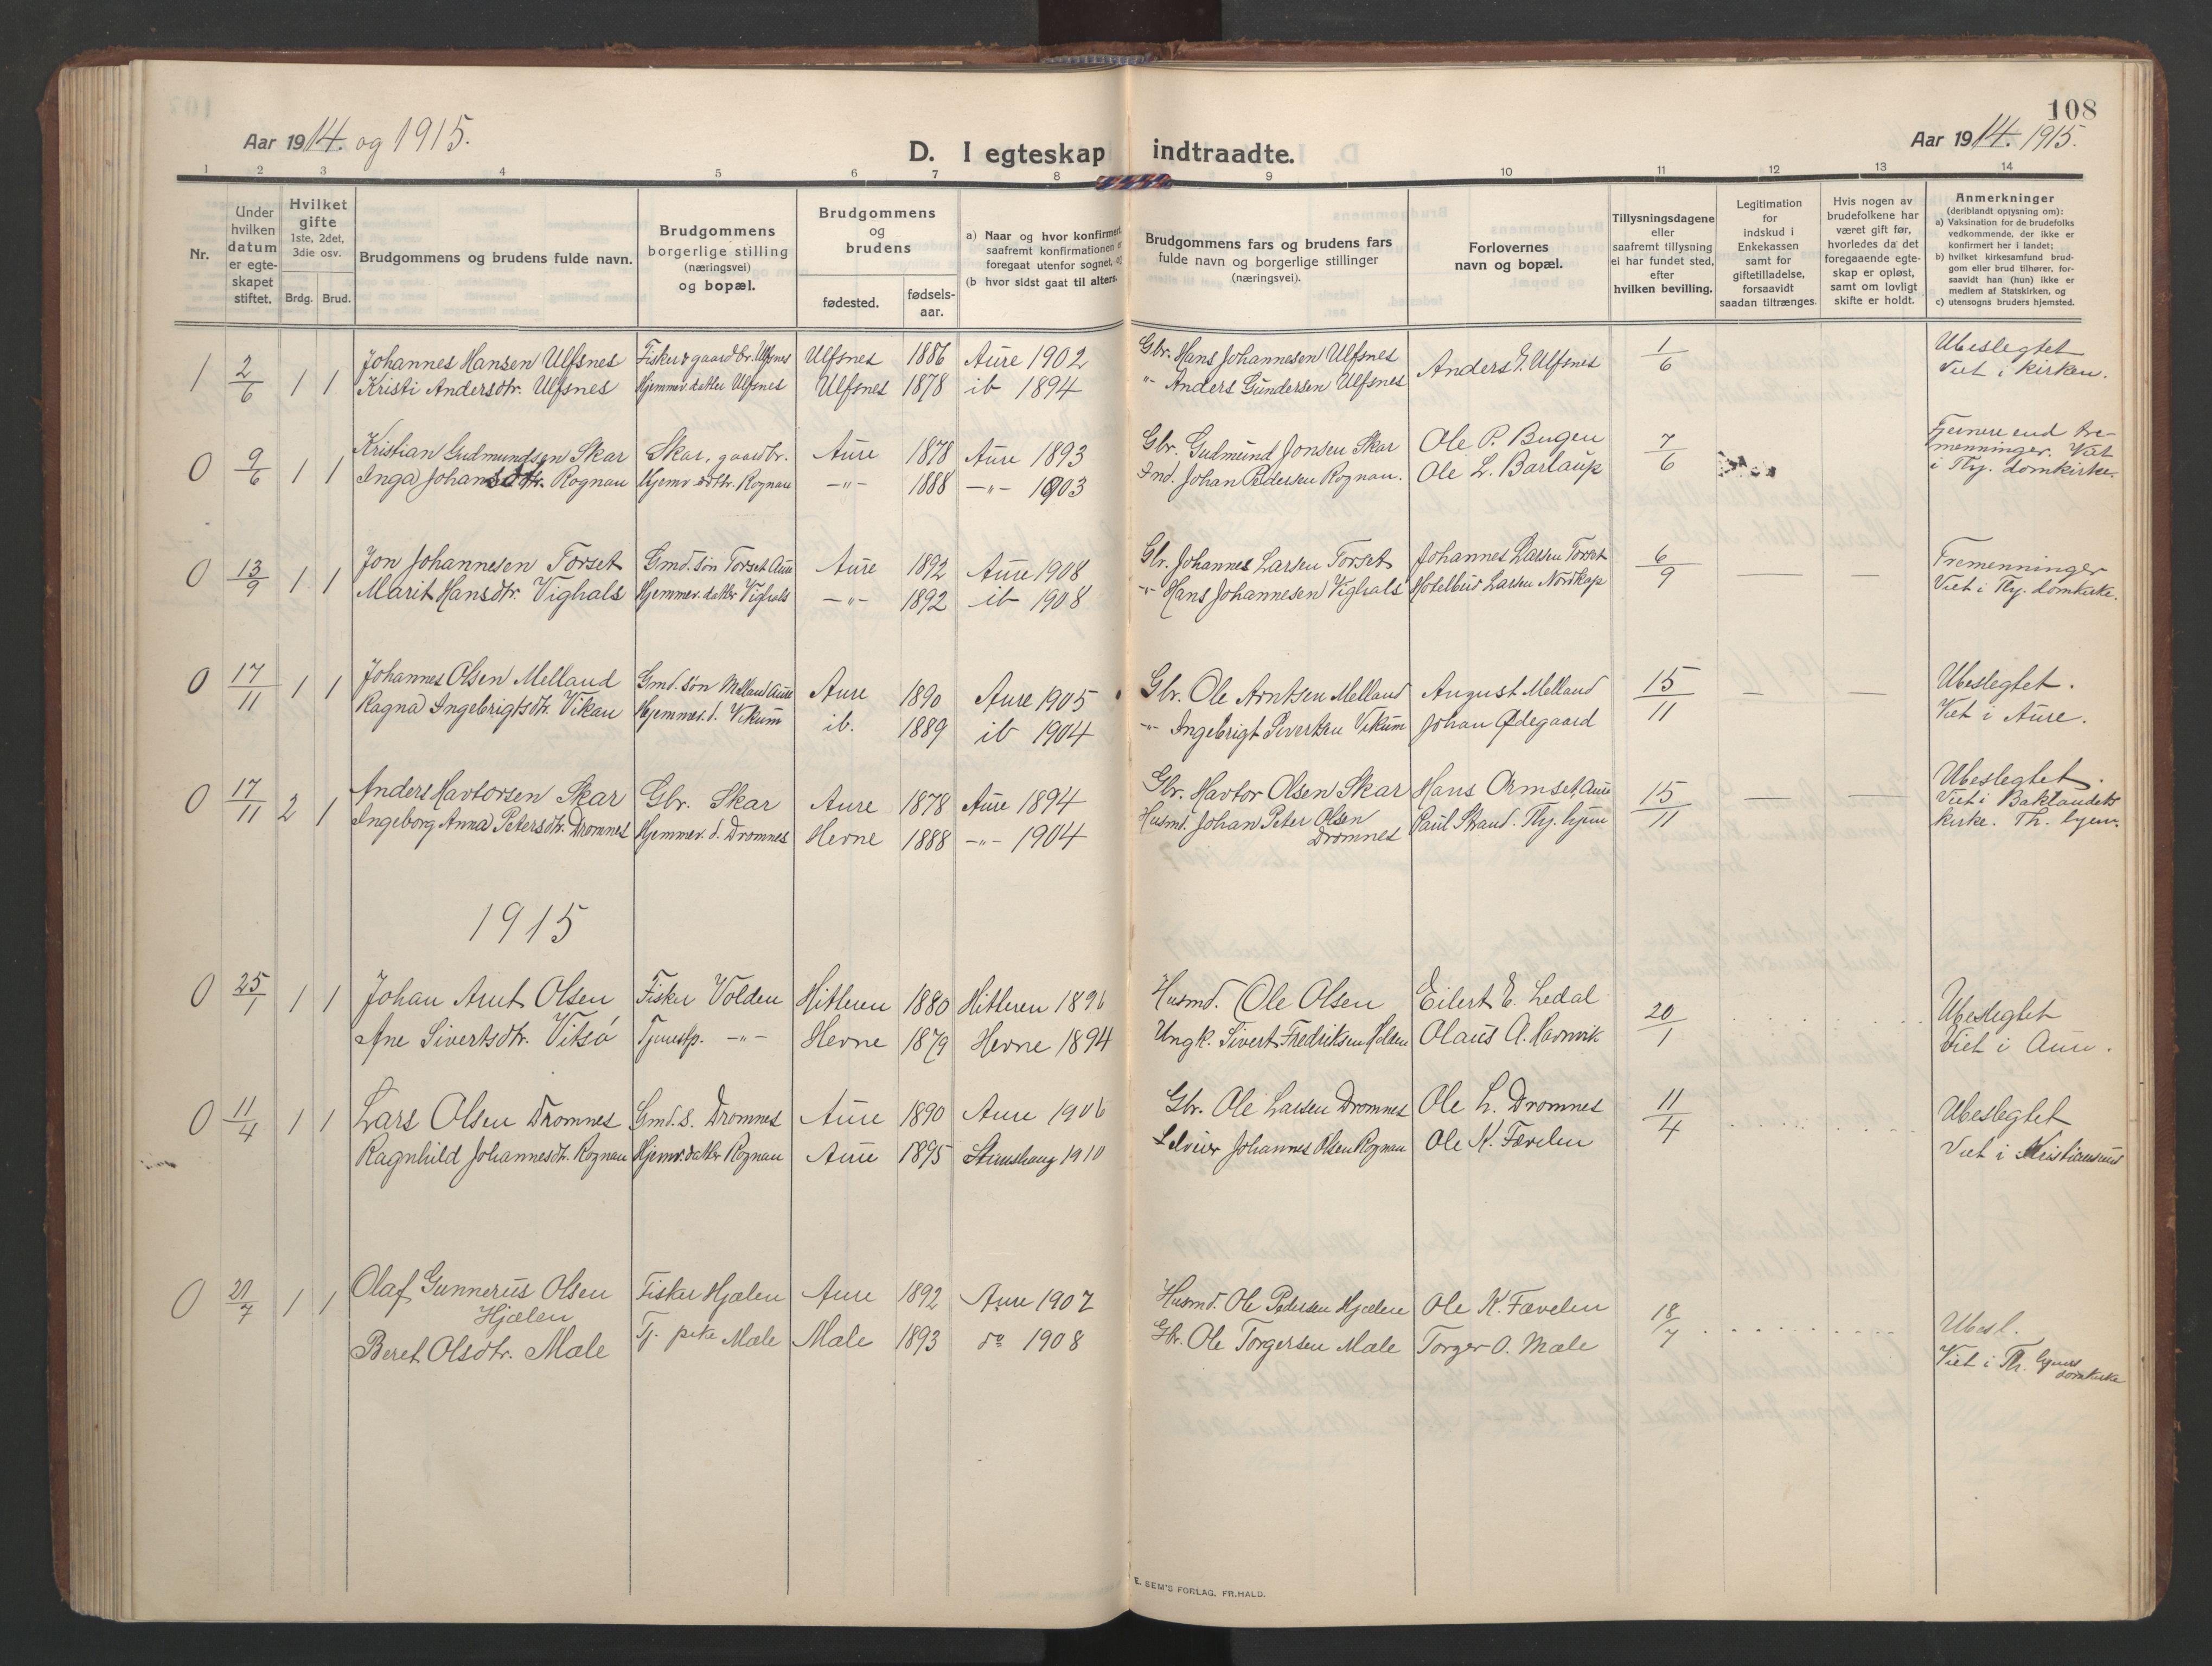 108
Aar 1914. og 1915.
D. I egteskap indtraadte.
Aar 1914. 1915.
1 2 3 4 5 6 7 8 9 10 11 12 13 14
Nr.
Under hvilken datum er egte-skapet stiftet.
Hvilket gifte 1ste, 2det, 3die osv.
Brdg. Brud.
Brudgommens og brudens fulde navn.
Brudgommens borgerlige stilling (næringsvei) og bopæl.
Brudgommens og brudens
fødested. fødsels-aar.
a) Naar og hvor konfirmert, saafremt konfirmationen er foregaat utenfor sognet, og
(b hvor sidst gaat til alters.
Brudgommens fars og brudens fars fulde navn og borgerlige stillinger (næringsvei).
Forlovernes navn og bopæl.
Tillysningsdagene eller saafremt tillysning ei har fundet sted, efter hvilken bevilling.
Legitimation for indskud i Enkekassen samt for giftetilladelse, forsaavidt saadan tiltrænges.
Hvis nogen av brudefolkene har været gift før, hvorledes da det foregaaende egte-skap er opløst, samt om lovligt skifte er holdt.
Anmerkninger (deriblandt oplysning om):
a) Vaksination for de brudefolks vedkommende, der ikke er konfirmert her i landet;
b) hvilket kirkesamfund brud-gom eller brud tilhører, for-saavidt han (hun) ikke er medlem af Statskirken, og
c) utensogns bruders hjemsted.
1 2/6 1 1 Johannes Hansen Ulfsnes Fisker & gaardbr. Ulfsnes Ulfsnes 1886 Aure 1902 Gbr. Hans Johannesen Ulfsnes Anders G. Ulfsnes 1/6 Ubeslegtet
Kristi Andersdtr. Ulfsnes Hjemmev. datter Ulfsnes Ulfsnes 1878 ib 1894 -"- Anders Gundersen Ulfsnes Viet i kirken.
0 9/6 1 1 Kristian Gudmundsen Skar Skar, gaardbr. Aure 1878 Aure 1893 Gbr. Gudmund Jonsen Skar Ole P. Bugen 7/6 Fjernere end tre-
menninger. Viet
Inga Johansdtr. Rognan Hjemv. dttr. Rognan -"- 1888 -"- 1903 Ind. Johan Pedersen Rognan. Ole L. Barlaup i Thj. domkirke.
0 13/9 1 1 Jon Johannesen Torset Gmd. søn Torset Aure Aure 1892 Aure 1908 Gbr. Johannes Larsen Torset Johannes Larsen Torset 6/9 — Tremenninger
Marit Hansdtr. Vighals Hjemmev. datter Vighals -"- 1892 ib 1908 -"- Hans Johannesen Vighals Hotelbud Larsen Nordkap Viet i Thj. domkirke.
0 17/11 1 1 Johannes Olsen Melland Gmd. søn Melland Aure Aure 1890 Aure 1905 Gbr. Ole Arntsen Melland August Melland 15/11 — — Ubeslegtet.
Ragna Ingebrigtsdtr. Vikan Hjemmev. d. Vikum ib. 1889 ib 1904 -"- Ingebrigt Sivertsen Vikum Johan Ødegaard Viet i Aure.
0 17/11 2 1 Anders Havtorsen Skar Gbr. Skar Aure 1878 Aure 1894 Gbr. Havtor Olsen Skar Hans Ormset, Aure 15/11 — — Ubeslegtet.
Viet i Baklandets
Ingeborg Anna Petersdtr. Dromnes Hjemmev. d. Dromnes Herne 1888 -"- 1904 Husmd. Johan Peter Olsen Dromnes Paul Strand. Thj. hjem kirke. Th. hjem.
1915
0 25/1 1 1 Johan Arnt Olsen Fisker Volden Hitteren 1880 Hitteren 1896 Husmd. Ole Olsen Eilert E. Ledal 20/1 Ubeslegtet
Ane Sivertsdtr. Vitsø Tjenestp. -"- Herne 1879 Herne 1894 Ungk. Sivert Fredriksen Holden Olaus A. Havnvik Viet i Aure.
0 11/4 1 1 Lars Olsen Dromnes Gmd. s. Dromnes Aure 1890 Aure 1906 Gbr. Ole Larsen Dromnes Ole L. Dromnes 11/4 Ubeslegtet
Ragnhild Johannesdtr. Rognan Hjemv. datter Rognan Aure 1895 Stemshaug 1910 Selveier Johannes Olsen Rognan Ole K. Færelen Viet i Kristiansund
0 21/7 1 1 Olaf Gunnerius Olsen Hjælen Fisker Hjælen Aure 1892 Aure 1907 Husmd. Ole Pedersen Hjælen Ole K. Færelen 18/7 Ubesl.
Beret Olsdtr. Mæle Tj. pike Mæle Mæle 1893 do 1908 Gbr. Ole Torgersen Mæle Torger O. Mæle Viet i Th. hjems domkirke
E. SEM'S FORLAG. FR.HALD.